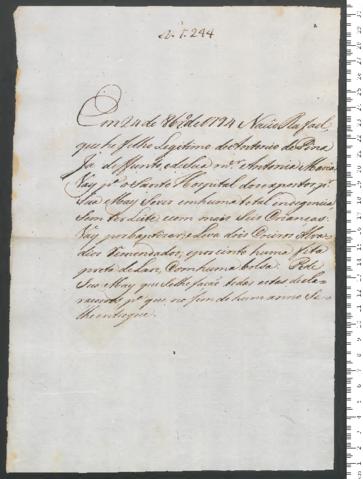 N. 1. 244
Em 24 de 8br.º de 1794 Naceo Rafael,
que he filho Legitimo de Antonio de Pina
ja defunto, e de Sua m.er Antonia Maria
Vay p.ª o Santo Hospital de expostos p.r
Sua May Viver em huma total indegencia
Sem ter Leite com mais Seis Crianças.
Vay por baptizar, e Leva dois Coeiros Alva-
dios Remendados, e por cinto huma fita
preta de Lan, com huma bolsa. Pede
Sua May que se lhe fação todas estas decla-
raçoens p.ª que no fim de hum anno Se
lhe entregue.